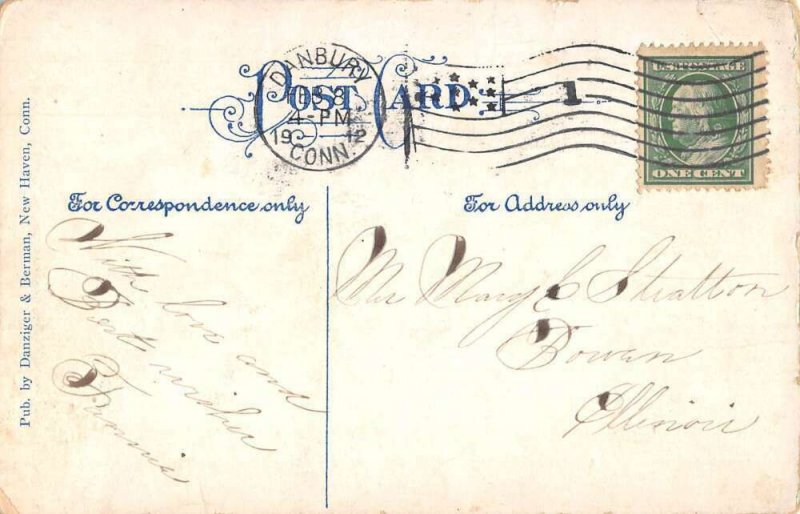 POST CARD
DANBURY
4-PM
1912
CONN.
1
U.S. POSTAGE
ONE CENT
For Correspondence only
For Address only
Pub. by Danziger & Berman, New Haven, Conn.
With love and
Best wishes
Fannie
Mrs Mary C Stratton
Bowen
Illinois